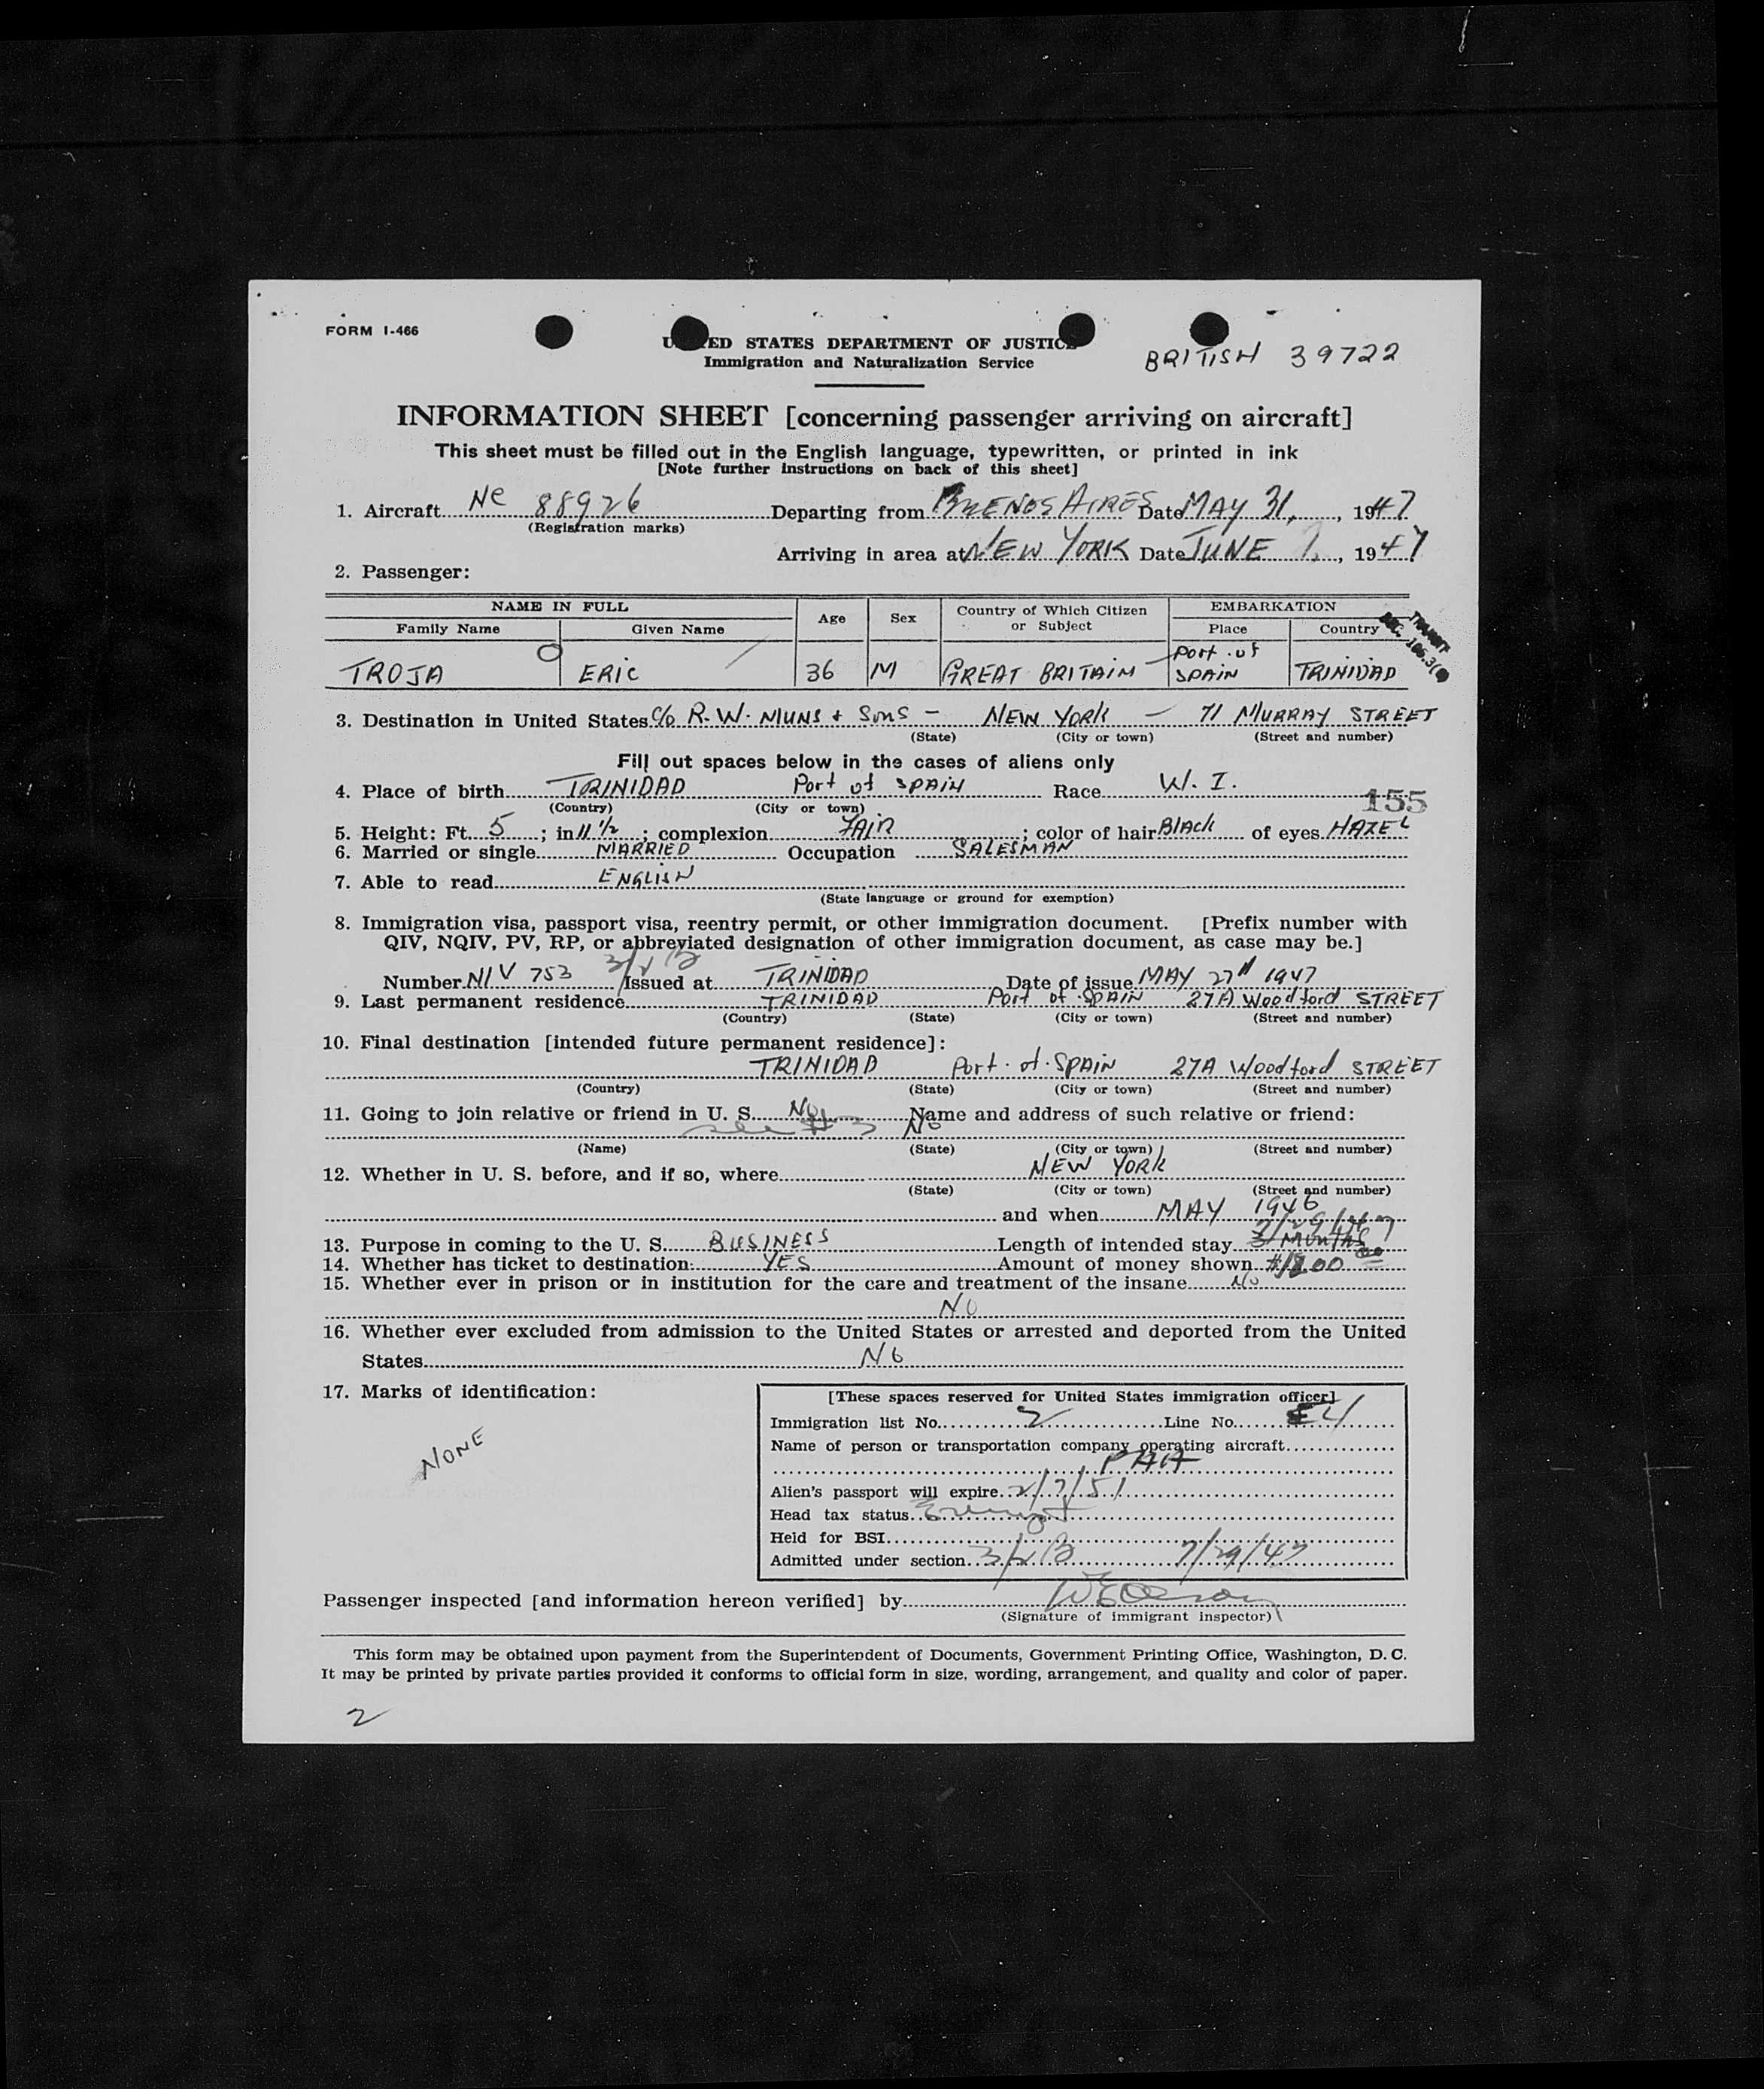 FORM I-466
ED STATES DEPARTMENT OF JUSTICE
Immigration and Naturalization Service
BRITISH 39722
INFORMATION SHEET [concerning passenger arriving on aircraft]
This sheet must be filled out in the English language, typewritten, or printed in ink
[Note further instructions on back of this sheet]
1. Aircraft Nc 88926 Departing from BUENOS AIRES Date MAY 31, 1947
(Registration marks)
Arriving in area at NEW YORK Date JUNE 1, 1947
2. Passenger:
NAME IN FULL Age Sex Country of Which Citizen or Subject EMBARKATION
Family Name Given Name Place Country
TRANSIT
106.3(
TROJA ERIC 36 M GREAT BRITAIN Port of SPAIN TRINIDAD
3. Destination in United States c/o R.W. MUNS + Sons - NEW YORK - 71 MURRAY STREET
(State) (City or town) (Street and number)
Fill out spaces below in the cases of aliens only
4. Place of birth TRINIDAD Port of SPAIN Race W. I.
(Country) (City or town)
155
5. Height: Ft. 5 ; in 11 1/2 ; complexion FAIR ; color of hair BLACK of eyes HAZEL
6. Married or single MARRIED Occupation SALESMAN
7. Able to read ENGLISH
(State language or ground for exemption)
8. Immigration visa, passport visa, reentry permit, or other immigration document. [Prefix number with
QIV, NQIV, PV, RP, or abbreviated designation of other immigration document, as case may be.]
3/2 B
Number NIV 753 Issued at TRINIDAD Date of issue MAY 27th 1947
9. Last permanent residence TRINIDAD Port of SPAIN 27A Woodford STREET
(Country) (State) (City or town) (Street and number)
10. Final destination [intended future permanent residence]:
TRINIDAD Port of SPAIN 27A Woodford STREET
(Country) (State) (City or town) (Street and number)
11. Going to join relative or friend in U. S. No Name and address of such relative or friend:
see #3 No
(Name) (State) (City or town) (Street and number)
12. Whether in U. S. before, and if so, where NEW YORK
(State) (City or town) (Street and number)
and when MAY 1946
7/29/47
13. Purpose in coming to the U. S. BUSINESS Length of intended stay 3 Months
14. Whether has ticket to destination: YES Amount of money shown $1800 00
15. Whether ever in prison or in institution for the care and treatment of the insane No
NO
16. Whether ever excluded from admission to the United States or arrested and deported from the United
States NO
17. Marks of identification:
NONE
[These spaces reserved for United States immigration officer]
Immigration list No. 2 Line No. 4
Name of person or transportation company operating aircraft
PAA
Alien's passport will expire 2/7/51
Head tax status Exempt
Held for BSI
Admitted under section 3/2 B 7/29/47
Passenger inspected [and information hereon verified] by
(Signature of immigrant inspector)
This form may be obtained upon payment from the Superintendent of Documents, Government Printing Office, Washington, D. C.
It may be printed by private parties provided it conforms to official form in size, wording, arrangement, and quality and color of paper.
2